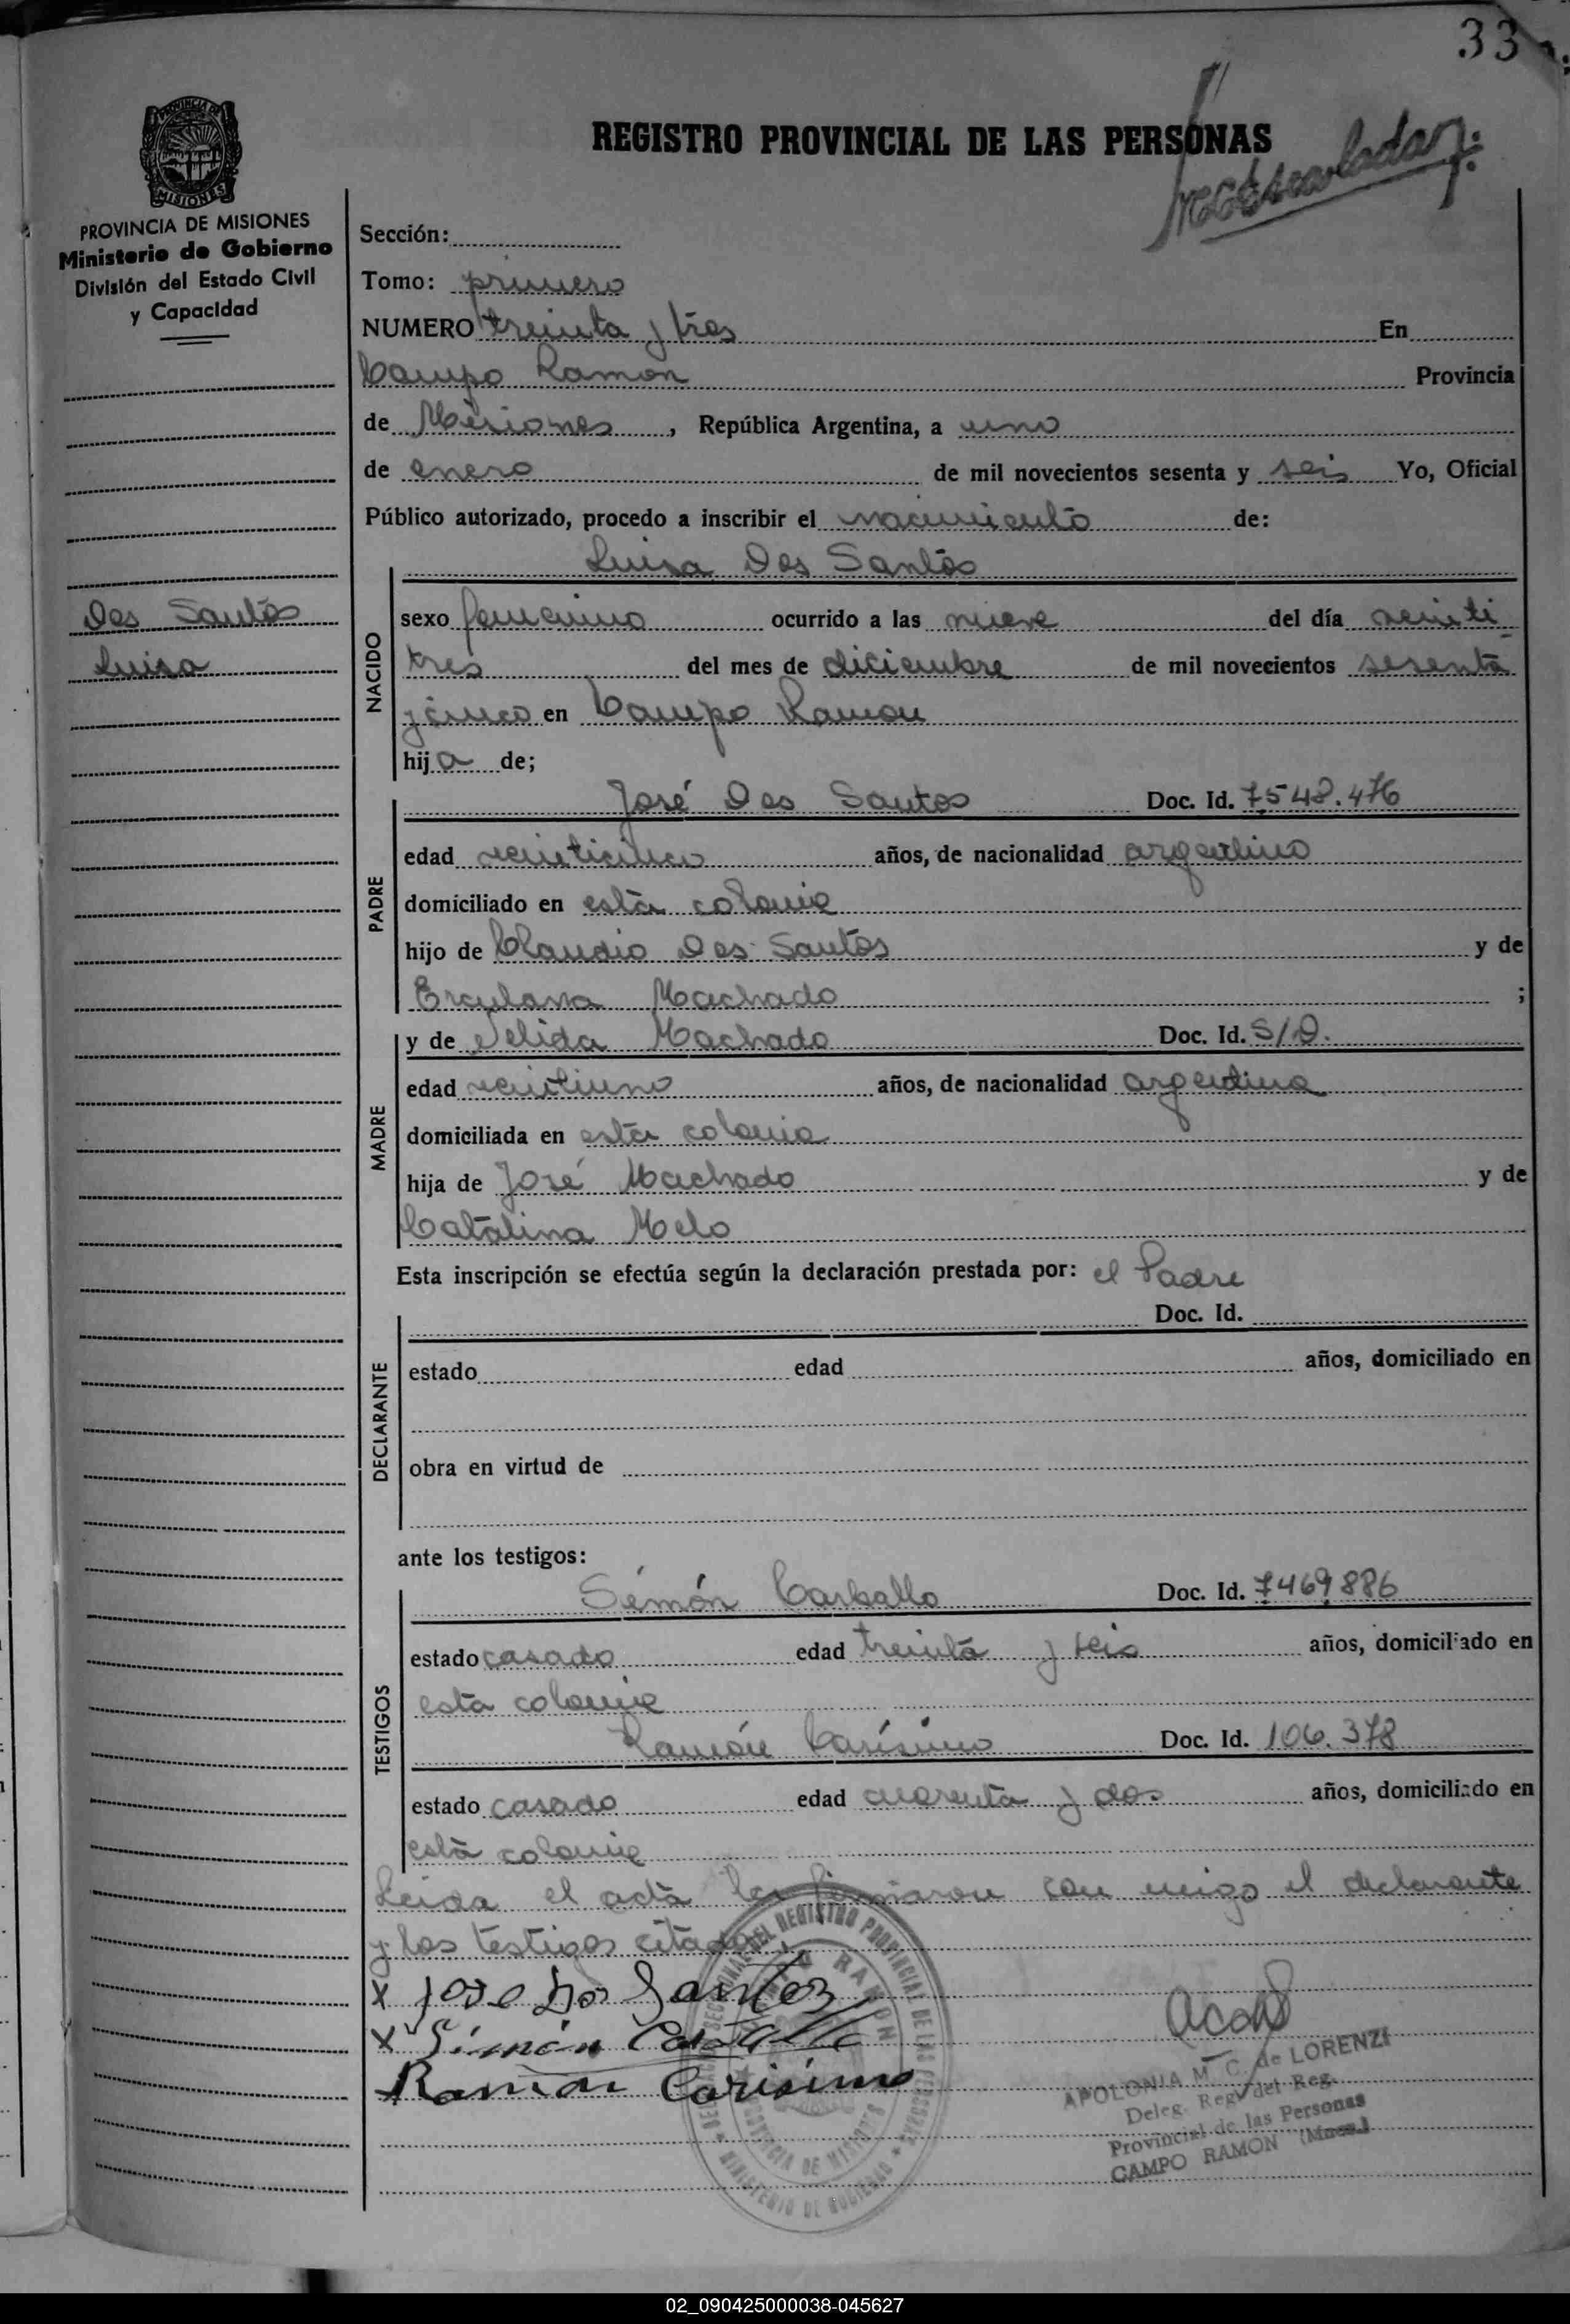 33
REGISTRO PROVINCIAL DE LAS PERSONAS
PROVINCIA DE MISIONES
Ministerio de Gobierno
División del Estado Civil
y Capacidad
Des Santos
Luisa
Sección:
Tomo: primero
NUMERO treinta y tres En
Campo Ramon Provincia
de Misiones, República Argentina, a uno
de enero de mil novecientos sesenta y seis Yo, Oficial
Público autorizado, procedo a inscribir el nacimiento de:
NACIDO
Luisa Dos Santos
sexo femenino ocurrido a las nueve del día veinti
tres del mes de diciembre de mil novecientos sesenta
y cinco en Campo Ramon
hija de;
PADRE
José Dos Santos Doc. Id. 7548.476
edad veinticinco años, de nacionalidad argentino
domiciliado en esta colonia
hijo de Claudio Dos Santos y de
Erculana Machado ;
MADRE
y de Nelida Machado Doc. Id. S/D.
edad veintiuno años, de nacionalidad argentina
domiciliada en esta colonia
hija de José Machado y de
Catalina Melo
Esta inscripción se efectúa según la declaración prestada por: el Padre
DECLARANTE
Doc. Id.
estado edad años, domiciliado en
obra en virtud de
ante los testigos:
TESTIGOS
Simón Carballo Doc. Id. 7469886
estado casado edad treinta y seis años, domiciliado en
esta colonia
Ramón Carísimo Doc. Id. 106.378
estado casado edad cuarenta y dos años, domiciliado en
esta colonia
Leida el acta la firmaron con migo el declarante
y los testigos citados.
x Jose Dos Santos
x Simón Carballo
Ramon Carisimo
APOLONIA M. C. de LORENZI
Deleg. Reg. del Reg.
Provincial de las Personas
CAMPO RAMON (Mnes.)
02_090425000038-045627